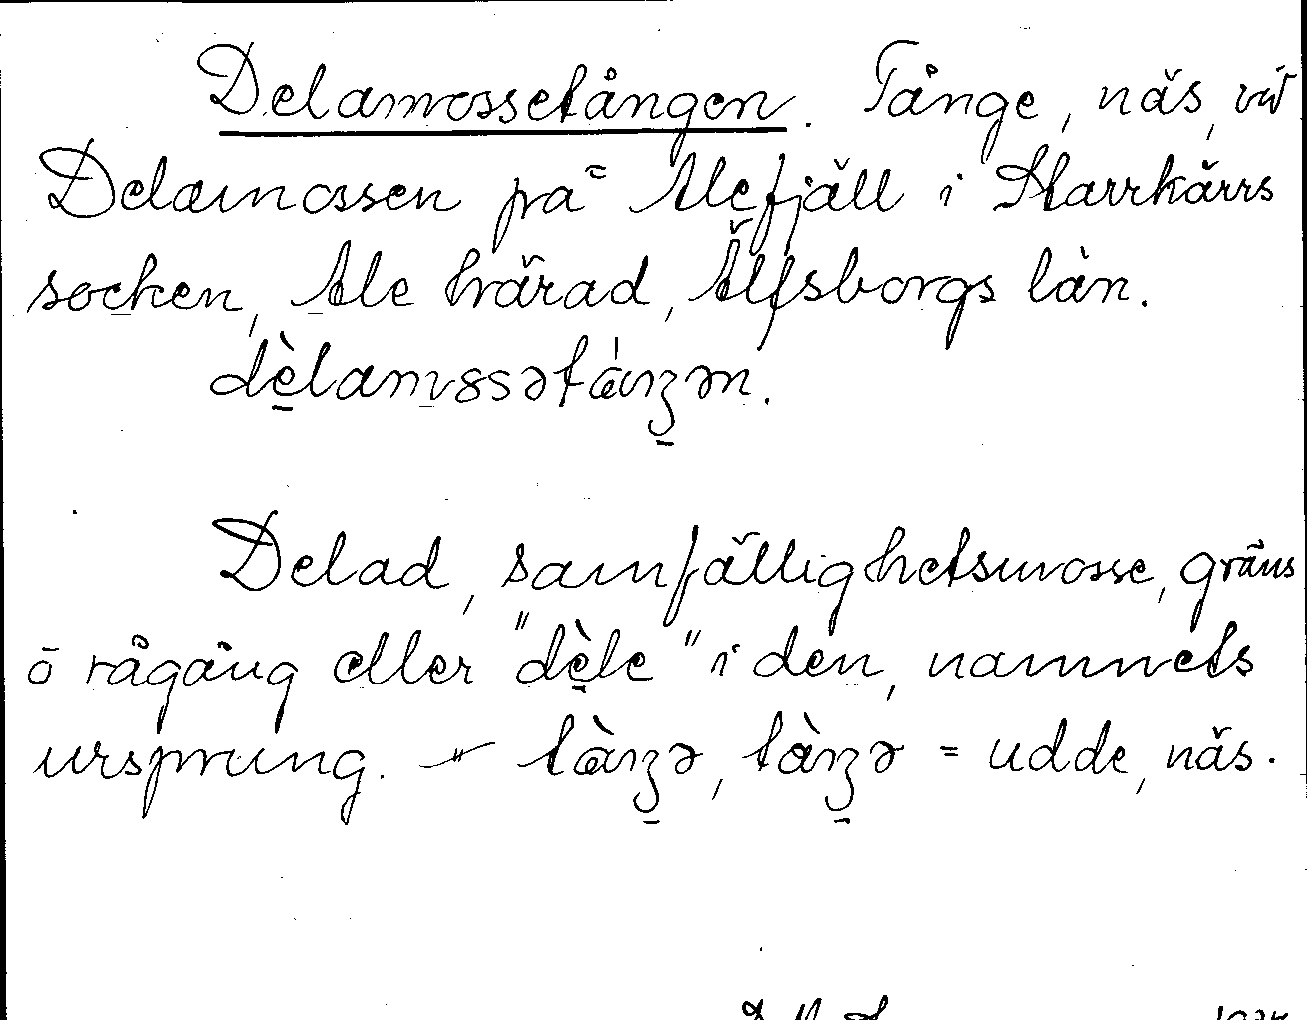 Delamossetången. Tånge, näs, vid
Delamossen på Alefjäll i Starrkärrs
socken, Ale härad, Älfsborgs län.
dèlamssətáŋən.
Delad, samfällighetsmosse, gräns
o rågång eller "dèle" i den, namnets
ursprung. - tàŋə, tàŋə = udde, näs.